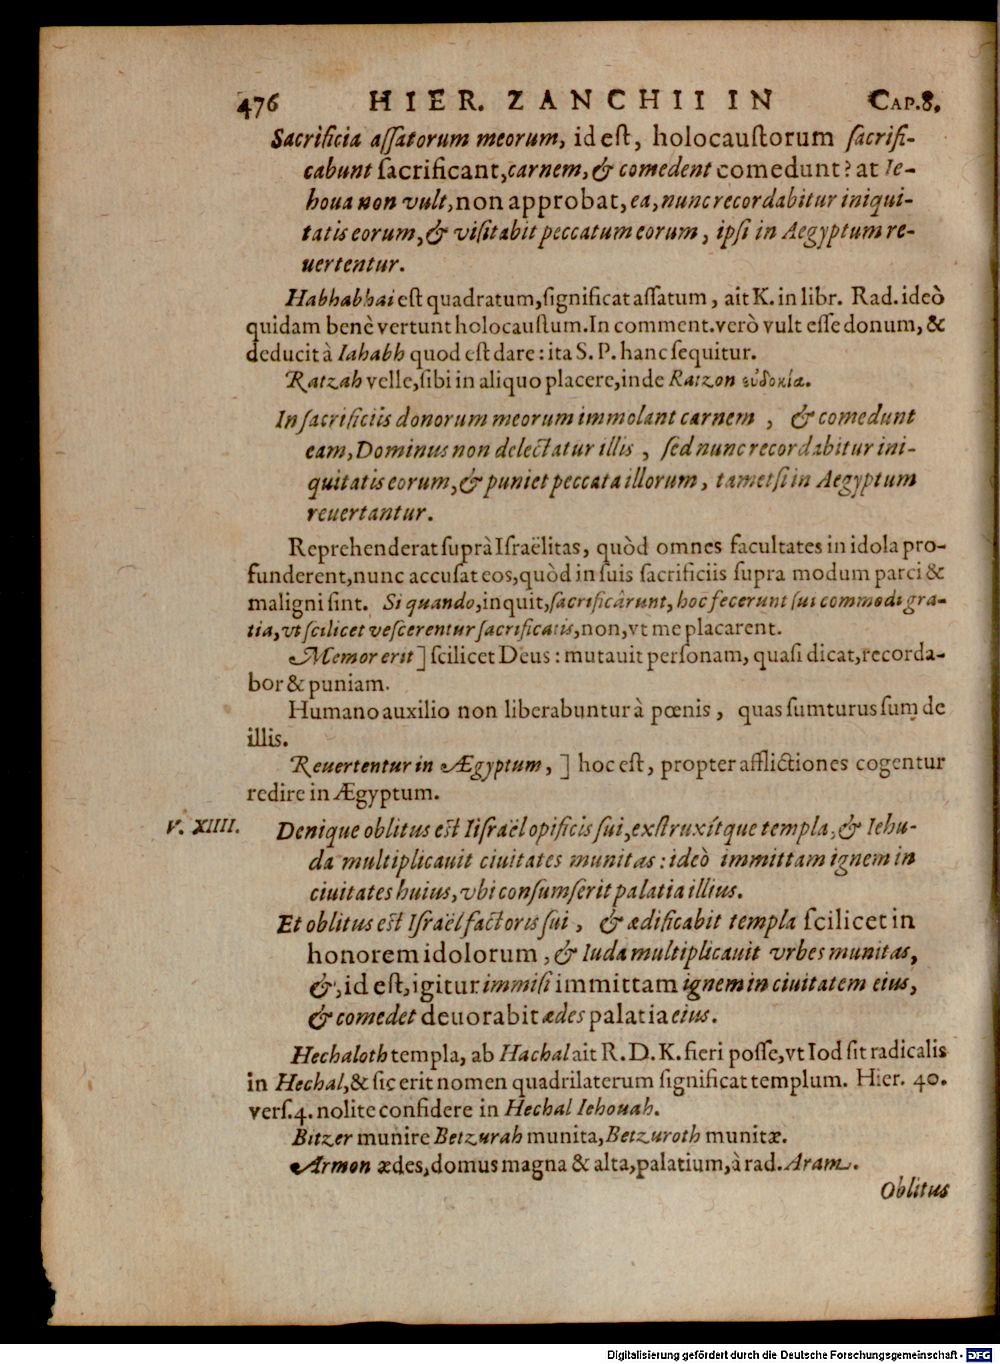 476 HIER. ZANCHII IN CAP.8.
Sacrificia aſſatorum meorum, id eſt, holocauſtorum ſacrifi-
cabunt ſacrificant, carnem, & comedent comedunt? at Ie-
houa non vult, non approbat, ea, nunc recordabitur iniqui-
tatis eorum, & viſitabit peccatum eorum, ipſi in Aegyptum re-
uertentur.
Habhabhai eſt quadratum, ſignificat aſſatum, ait K. in libr. Rad. ideò
quidam benè vertunt holocauſtum. In comment. verò vult eſſe donum, &
deducit à Iahabh quod eſt dare: ita S. P. hanc ſequitur.
Ratzah velle, ſibi in aliquo placere, inde Ratzon εὐδοκία.
In ſacrificiis donorum meorum immolant carnem, & comedunt
eam, Dominus non delectatur illis, ſed nunc recordabitur ini-
quitatis eorum, & puniet peccata illorum, tametſi in Aegyptum
reuertantur.
Reprehenderat ſuprà Iſraëlitas, quòd omnes facultates in idola pro-
funderent, nunc accuſat eos, quòd in ſuis ſacrificiis ſupra modum parci &
maligni ſint. Si quando, inquit, ſacrificârunt, hoc fecerunt ſui commodi gra-
tia, vt ſcilicet veſcerentur ſacrificatis, non, vt me placarent.
Memor erit] ſcilicet Deus: mutauit perſonam, quaſi dicat, recorda-
bor & puniam.
Humano auxilio non liberabuntur à pœnis, quas ſumturus ſum de
illis.
Reuertentur in Ægyptum, ] hoc eſt, propter afflictiones cogentur
redire in Ægyptum.
V. XIIII. Denique oblitus eſt Iiſraël opificis ſui, exſtruxítque templa, & Iehu-
da multiplicauit ciuitates munitas: ideò immittam ignem in
ciuitates huius, vbi conſumſerit palatia illius.
Et oblitus eſt Iſraël factoris ſui, & ædificabit templa ſcilicet in
honorem idolorum, & Iuda multiplicauit vrbes munitas,
&, id eſt, igitur immiſi immittam ignem in ciuitatem eius,
& comedet deuorabit ædes palatia eius.
Hechaloth templa, ab Hachal ait R. D. K. fieri poſſe, vt Iod ſit radicalis
in Hechal, & ſic erit nomen quadrilaterum ſignificat templum. Hier. 40.
verſ. 4. nolite confidere in Hechal Iehouah.
Bitzer munire Betzurah munita, Betzuroth munitæ.
Armon ædes, domus magna & alta, palatium, à rad. Aram.
Oblitus
Digitalisierung gefördert durch die Deutsche Forschungsgemeinschaft - DFG